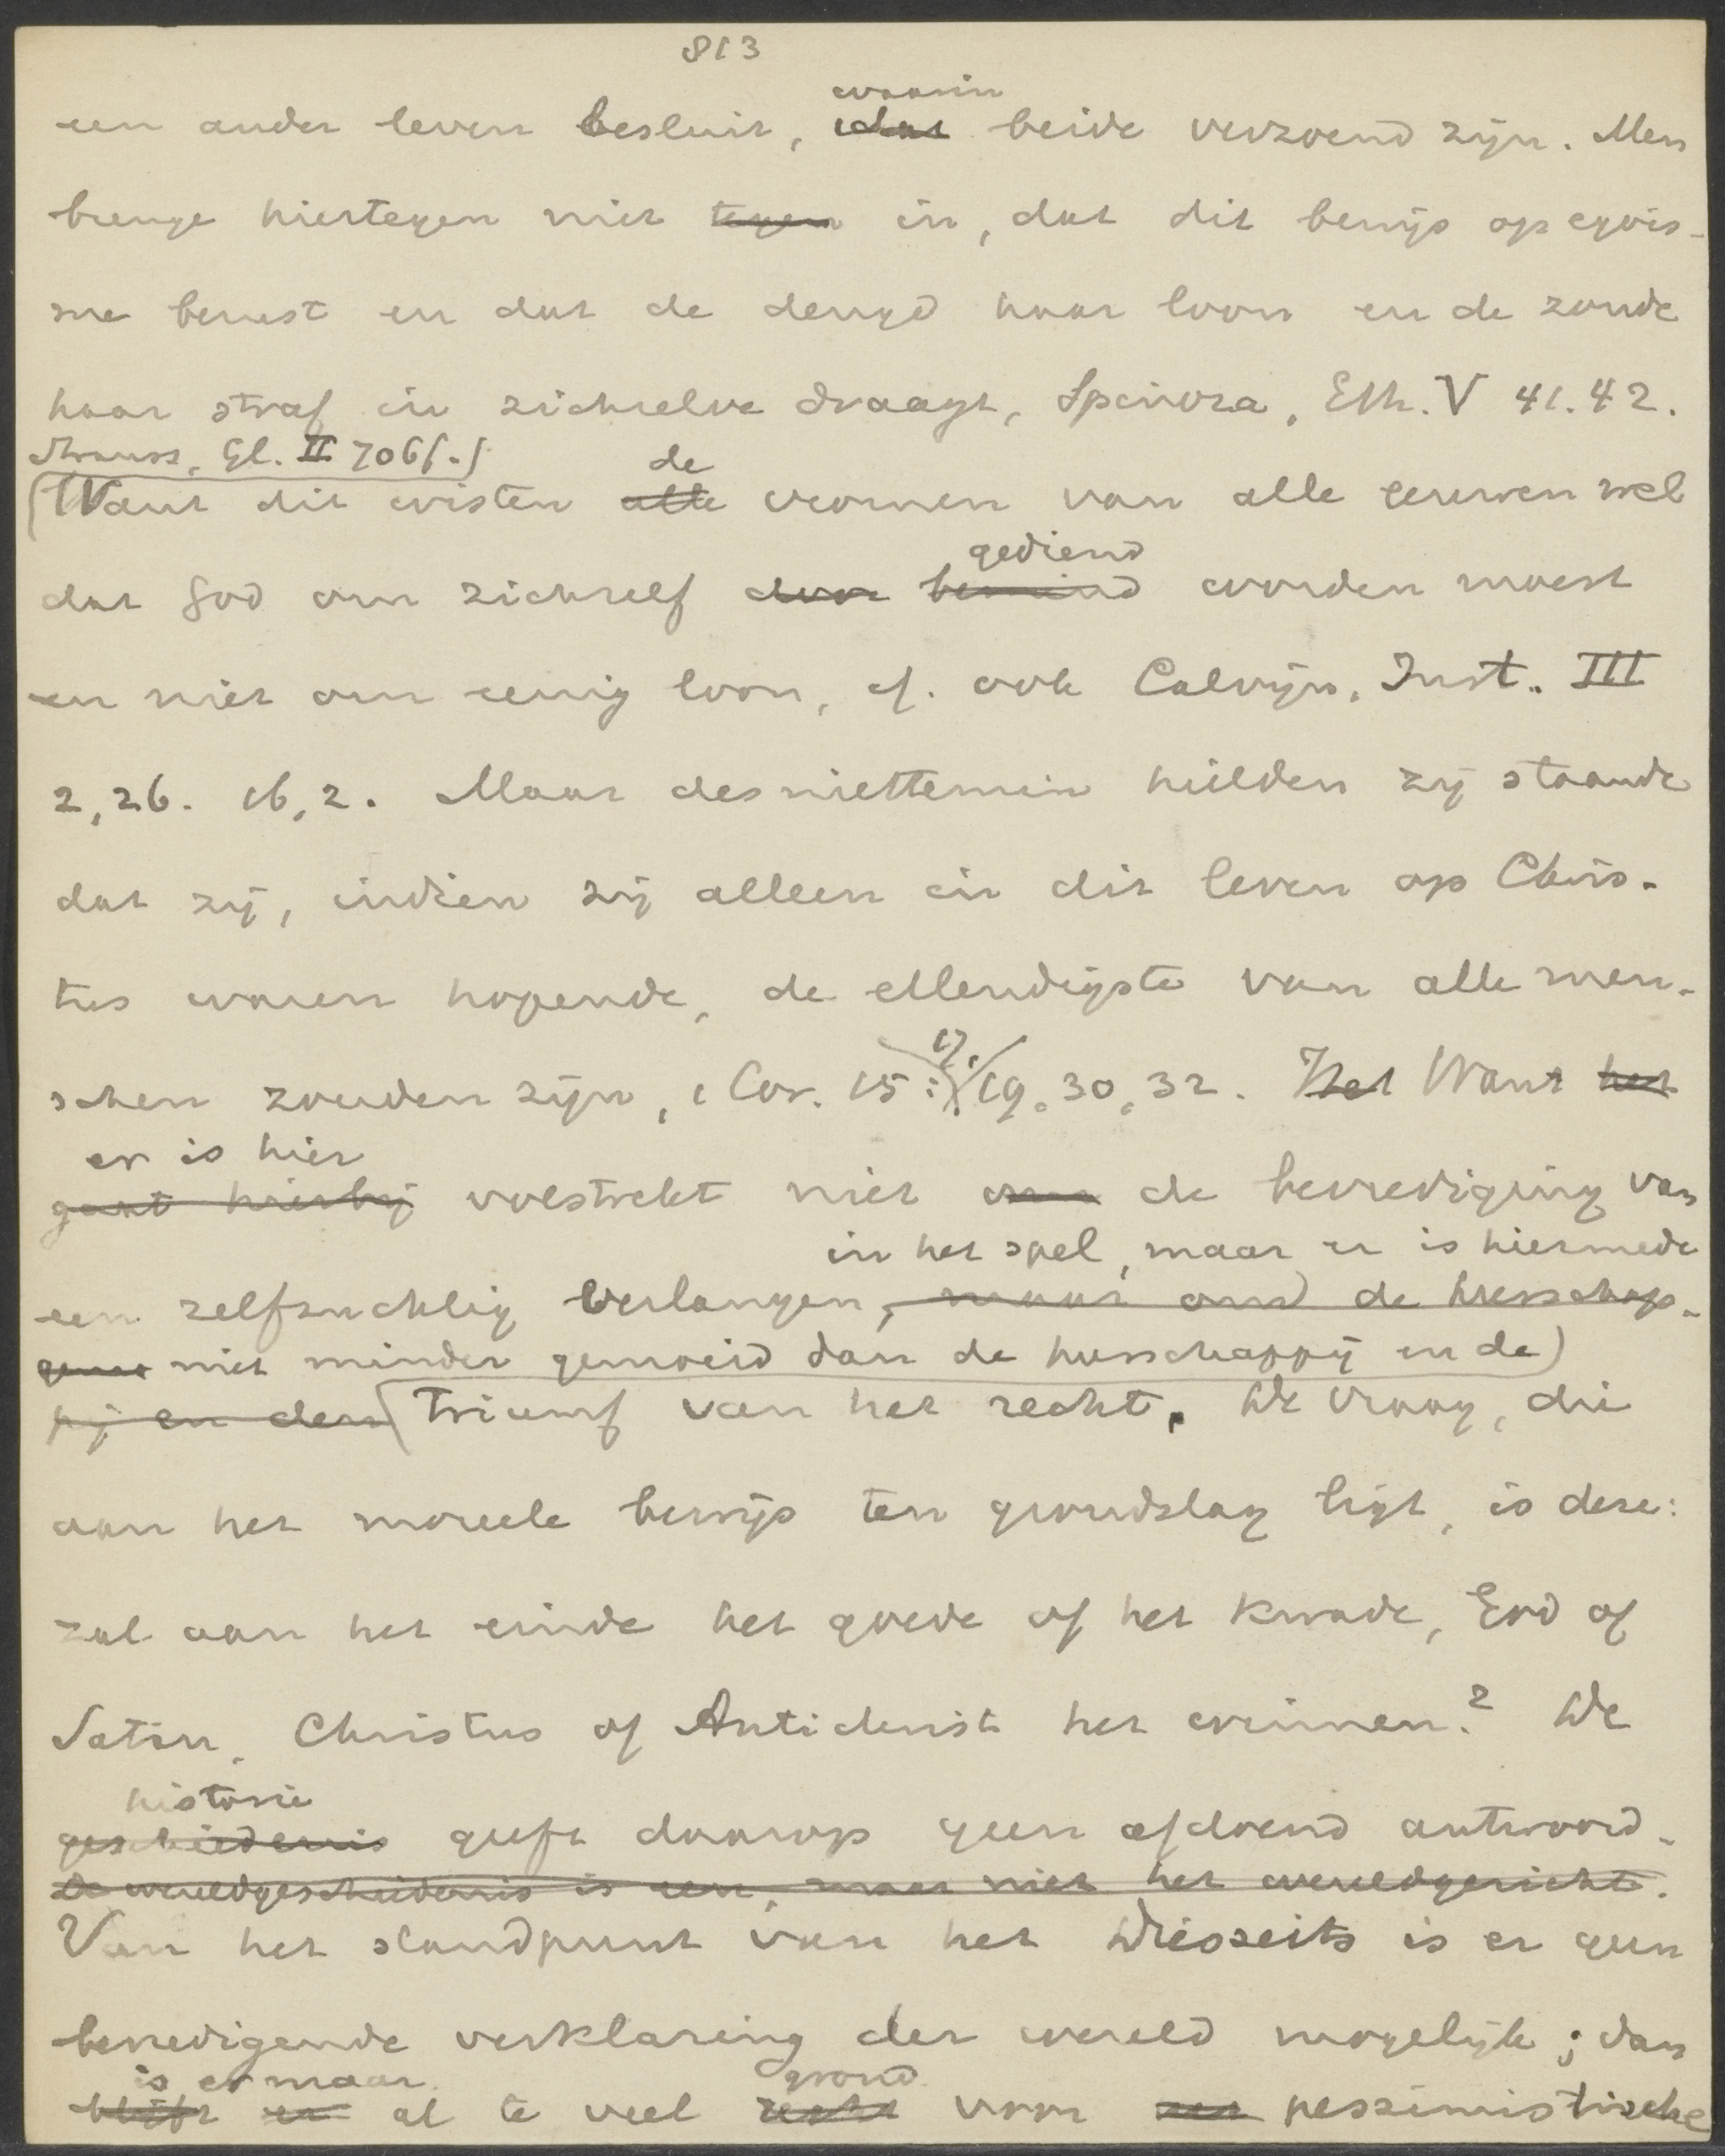 813
waarin
een ander leven besluit, dat beide verzoend zijn. Men
brenge hiertegen niet tegen in, dat dit bewijs op egois-
me berust en dat de deugd haar loon en de zonde
haar straf in zichzelve draagt, Spinoza, Eth. V 41.42.
Strauss, Gl. II 706f.
de
Want dit wisten alle vromen van alle eeuwen wel
gediend
dat God om zichzelf door bemind worden moest
en niet om eenig loon, cf. ook Calvijn, Inst. III
2,26. 16,2. Maar desniettemin hielden zij staande
dat zij, indien zij alleen in dit leven op Chris-
tus waren hopende, de ellendigste van alle men-
17.
schen zouden zijn, 1 Cor. 15: 19.30,32. Het Want het
er is hier
gaat hierbij volstrekt niet om de bevrediging van
in het spel, maar er is hiermede
een zelfzuchtig verlangen, maar om de heerschap-
niet minder gemoeid dan de heerschappij en de
pij en den triumf van het recht. De vraag, die
aan het moreele bewijs ten grondslag ligt, is deze:
zal aan het einde het goede of het kwade, God of
Satan, Christus of Antichrist het winnen? De
historie
geschiedenis geeft daarop geen afdoend antwoord.
De wereldgeschiedenis is een, maar niet het wereldgericht.
Van het standpunt van het Diesseits is er geen
bevredigende verklaring der wereld mogelijk; dan
is er maar grond
blijft er al te veel recht voor pessimistische